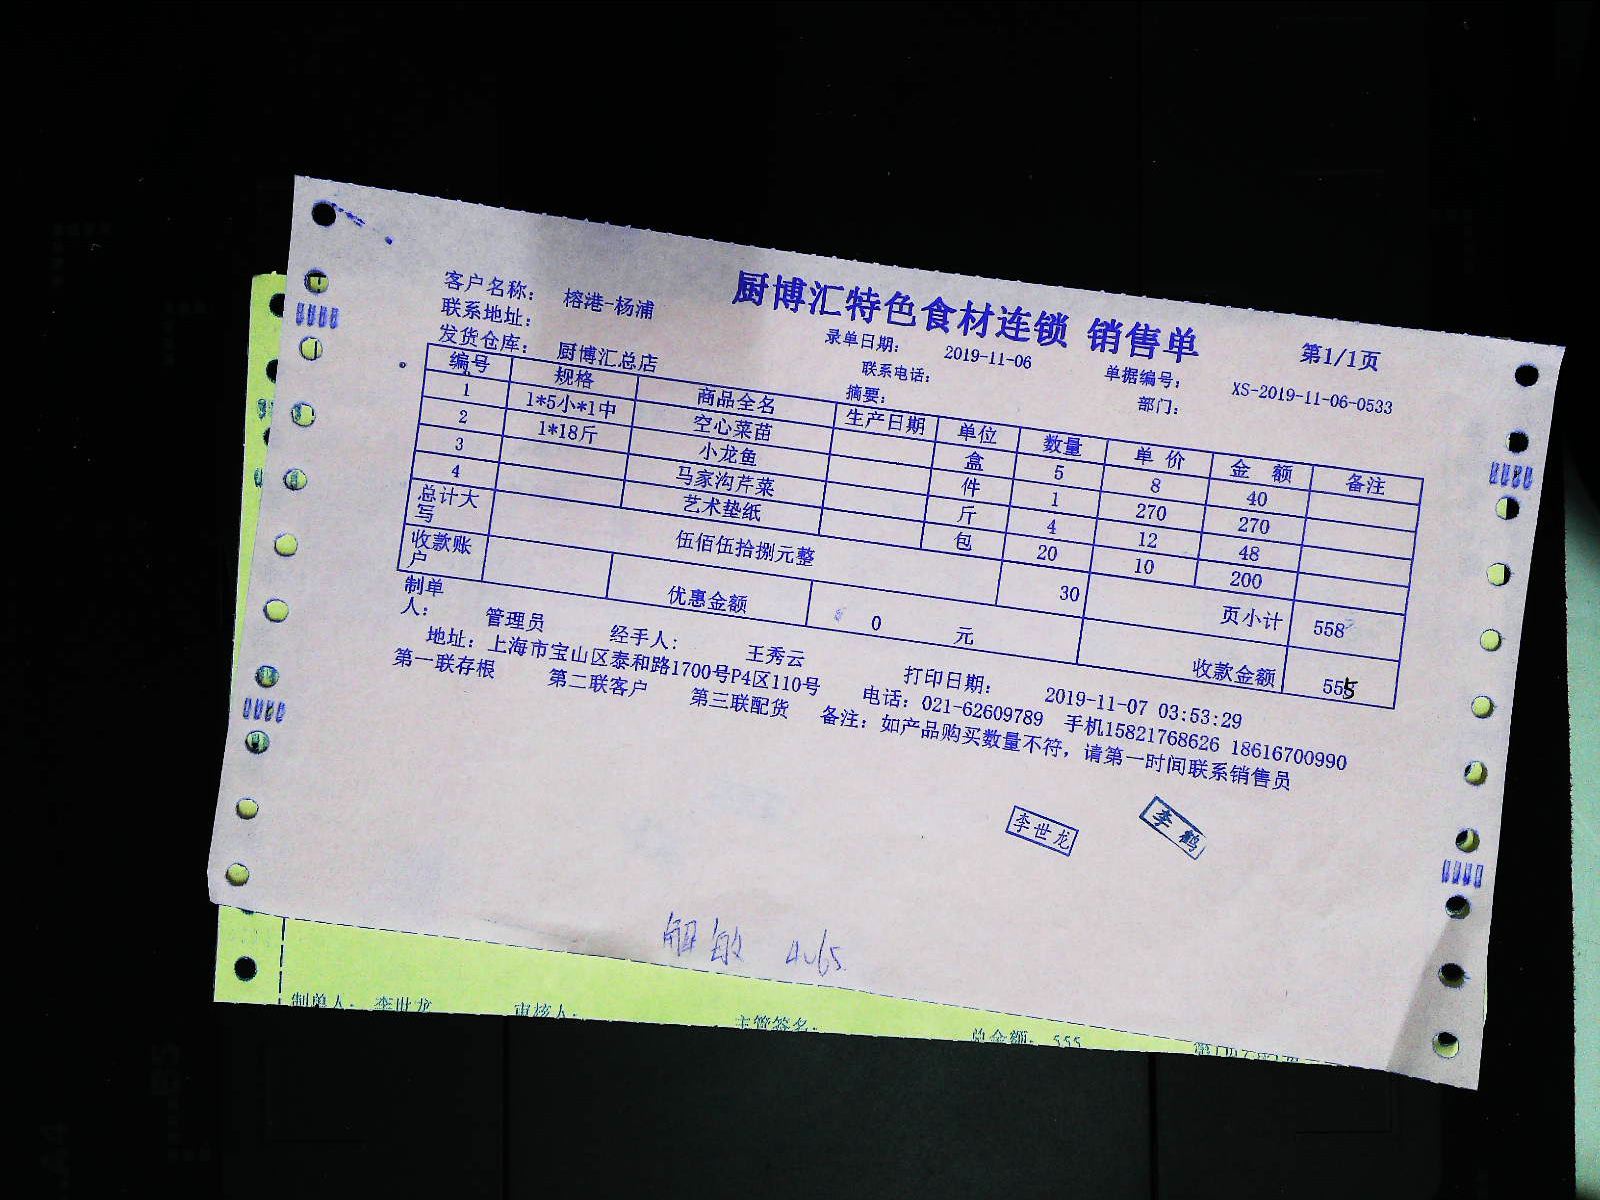 厨博汇特色食材连锁 销售单
第1/1页
客户名称： 榕港-杨浦
录单日期： 2019-11-06
单据编号： XS-2019-11-06-0533
联系地址：
联系电话：
部门：
发货仓库： 厨博汇总店
摘要：
编号 规格 商品全名 生产日期 单位 数量 单价 金额 备注
1 1*5小*1中 空心菜苗 盒 5 8 40
2 1*18斤 小龙鱼 件 1 270 270
3 马家沟芹菜 斤 4 12 48
4 艺术垫纸 包 20 10 200
总计大写 伍佰伍拾捌元整 30 页小计 558
收款账户 优惠金额 0 元 收款金额 555
制单人： 管理员 经手人： 王秀云 打印日期： 2019-11-07 03:53:29
地址：上海市宝山区泰和路1700号P4区110号 电话：021-62609789 手机15821768626 18616700990
第一联存根 第二联客户 第三联配货 备注：如产品购买数量不符，请第一时间联系销售员
李世龙
李鹤
制单人： 李世龙 审核人： 主管签名： 总金额： 555